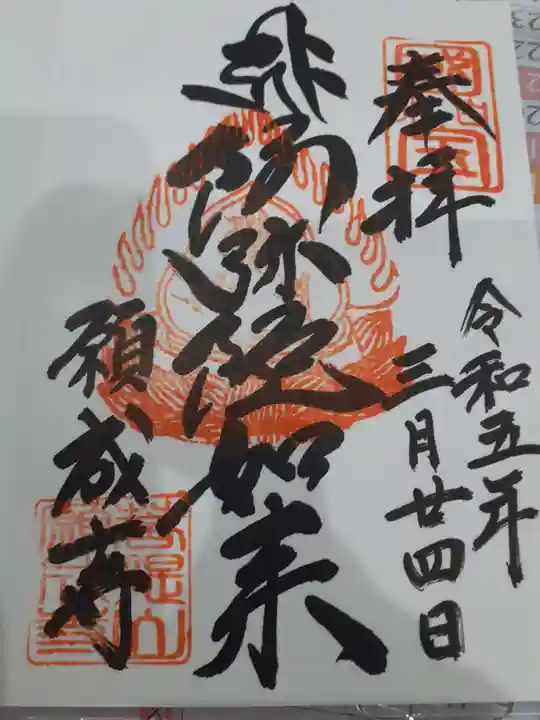 奉拝
令和五年
三月廿四日
阿弥陀如来
願成寺